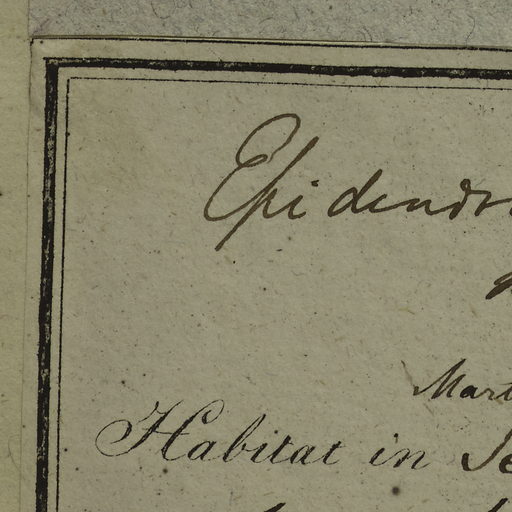 Epidendr
Mart
Habitat in Se